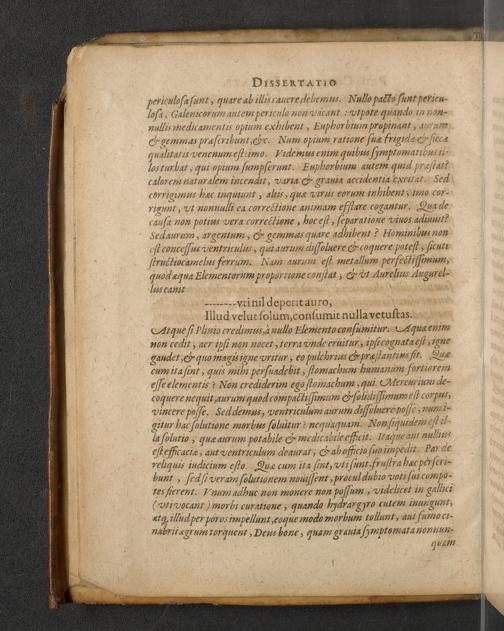 DISSERTATIO
periculosa sunt, quare ab illis cauere debemus. Nullo pacto sunt pericu-
losa. Galenicorum autem periculo non vacant: vtpote quando in non-
nullis medicamentis opium exhibent, Euphorbium propinant, aurum
& gemmas præscribunt, &c. Num opium ratione suæ frigidæ & siccæ
qualitatis venenum est? imo. Videmus enim quibus symptomatibus il-
los turbat, qui opium sumpserunt. Euphorbium autem quid præstat?
calorem naturalem incendit, varia & grauia accidentia excitat. Sed
corrigimus hæc inquiunt, aliis, quæ virus eorum inhibent, imo cor-
rigunt, vt nonnulli ea correctione animam efflare cogantur. Qua de
causa non potius vera correctione, hoc est, separatione viuos adiuuit?
Sed aurum, argentum, & gemmas quare adhibent? Hominibus non
est concessus ventriculus, qui aurum dissoluere & coquere potest, sicuti
structiocamelus ferrum. Nam aurum est metallum perfectissimum,
quod æqua Elementorum proportione constat, & vt Aurelius Augurel-
lus canit
--------vti nil deperit auro,
Illud velut solum, consumit nulla vetustas.
Atque si Plinio credimus, à nullo Elemento consumitur. Aqua enim
non cedit, aer ipsi non nocet, terra vnde eruitur, ipsi cognata est, igne
gaudet, & quo magis igne vritur, eo pulchrius & præstantius fit. Quæ
cum ita sint, quis mihi persuadebit, stomachum humanum fortiorem
esse elementis? Non crediderim ego stomachum, qui Mercurium de-
coquere nequit, aurum quod compactissimum & solidissimum est corpus,
vincere posse. Sed demus, ventriculum aurum dissoluere posse, num i-
gitur hac solutione morbus soluitur? nequaquam. Non siquidem est il-
la solutio, quæ aurum potabile & medicabile efficit. Itaque aut nullius
est efficaciæ, aut ventriculum deaurat, & ab officio suo impedit. Par de
reliquis iudicium esto. Quæ cum ita sint, vt sunt, frustra hæc perscri-
bunt, sed si veram solutionem nouissent, procul dubio voti sui compo-
tes fierent. Vnum adhuc non monere non possum, videlicet in gallici
(vti vocant) morbi curatione, quando hydrargyro cutem inungunt,
atq, illud per poros impellunt, eoque modo morbum tollunt, aut fumo ci-
nabrii ægrum torquent, Deus bone, quam grauia symptomata nonnun-
quam